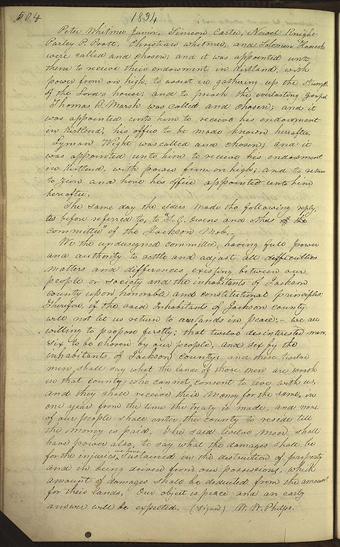 504 1834
Peter Whitmer Junior, Simeon Carter, Newel Knight
Parley P. Pratt, Christian Whitmer, and Solomon Hancock
were called and chosen; and it was appointed unto
them to receive their endowment in Kirtland, with
power from on high; to assist in gathering up the strength
of the Lord's house; and to preach the everlasting gospel
Thomas B. Marsh was called and chosen; and it
was appointed unto him to receive his endowment
in Kirtland, his office to be made known hereafter.
Lyman Wight was called and chosen; and it
was appointed unto him to receive his endowment
in Kirtland, with power from on high; and to return
to Zion and have his office appointed unto him
hereafter.
The same day the Elders made the following reply,
as before referred to, to "S. C. Owens and others of the
committee" of the Jackson Mob.
We the undersigned committee, having full power
and authority to settle and adjust all difficulties
matters and differences existing between our
people or society and the inhabitants of Jackson
county upon honorable and constitutional principles;
therefore if the said Inhabitants of Jackson county
will not let us return to our lands in peace;— we are
willing to propose firstly; that twelve disinterested men,
six to be chosen by our people, and six by the
inhabitants of Jackson county; and these twelve
men shall say what the lands of those men are worth
in that county who cannot consent to live with us,
and they shall receive their money for the same, in
one year from the time the treaty is made, and none
of our people shall enter the county to reside till
the money is paid. The said twelve men shall
have power also, to say what the damages shall be
for the injuries, we have sustained in the destruction of property
and in being driven from our possessions, which
amount of damages shall be deducted from the amount
for their lands. Our object is peace and an early
answer will be expected. (signed) W. W. Phelps.